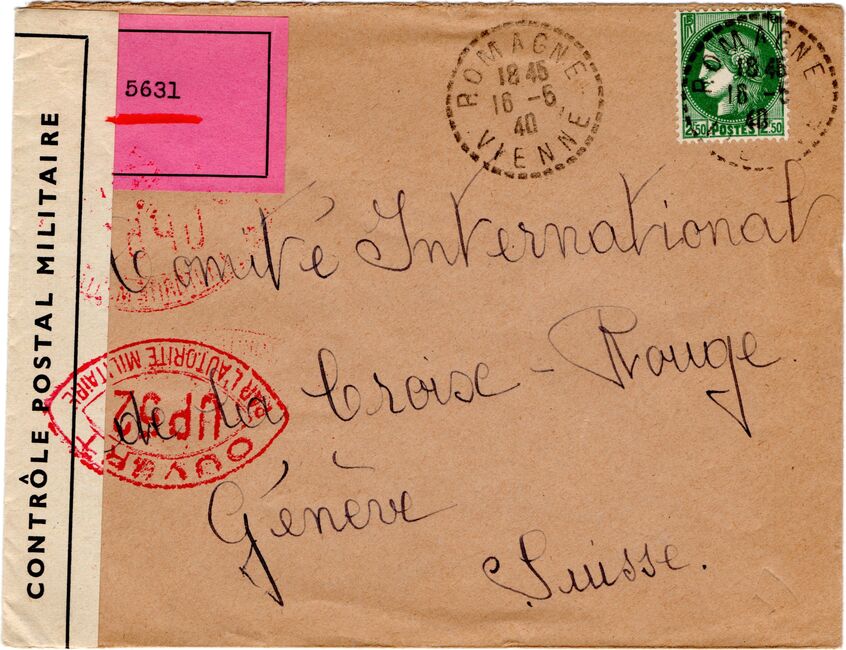 CONTRÔLE POSTAL MILITAIRE
5631
ROMAGNE
18 45
16 -5
40
VIENNE
ROMAGNE
18 45
16
40
2,50 POSTES 2,50
Comité International
de la Croix-Rouge.
Génève
Suisse.
OUVERT
PAR L'AUTORITÉ MILITAIRE